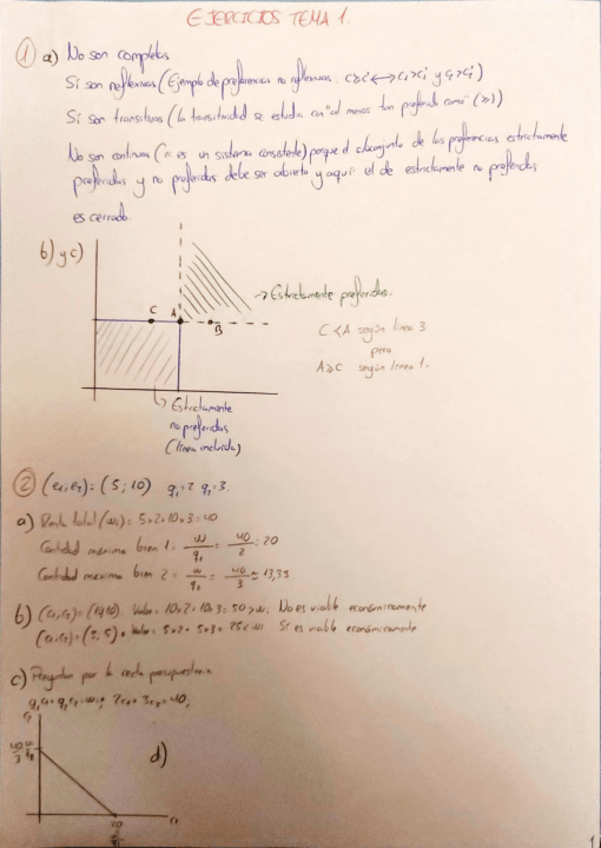 EJERCICIOS TEMA 1.
① a) No son completas
Sí son reflexivas (Ejemplo de preferencias no reflexivas:
Sí son transitivas (la transitividad se estudia con "al menos tan preferido como" (≽))
No son continuas (no es un sistema consistente) porque el subconjunto de las preferencias estrictamente
preferidas y no preferidas debe ser abierto y aquí el de estrictamente no preferidas
es cerrado.
b) y c)
C A B
→ Estrictamente preferidas.
C ≺ A según línea 3
pero
A ≽ C según línea 1.
Estrictamente
no preferidas
(línea incluida)
② (e₁, e₂) = (5; 10) q₁=2 q₂=3.
a) Renta total (w) = 5×2+10×3=40
Cantidad máxima bien 1 = w/q₁ = 40/2 = 20
Cantidad máxima bien 2 = w/q₂ = 40/3 ≈ 13,33
b) Valor = 10×2+10×3=50>w. No es viable económicamente
(c₁,c₂)=(5,5). Valor = 5×2+5×3=25<w. Sí es viable económicamente
c) Preguntan por la recta presupuestaria
q₁c₁+q₂c₂=w; 2c₁+3c₂=40,
40/3
d)
c₁
1